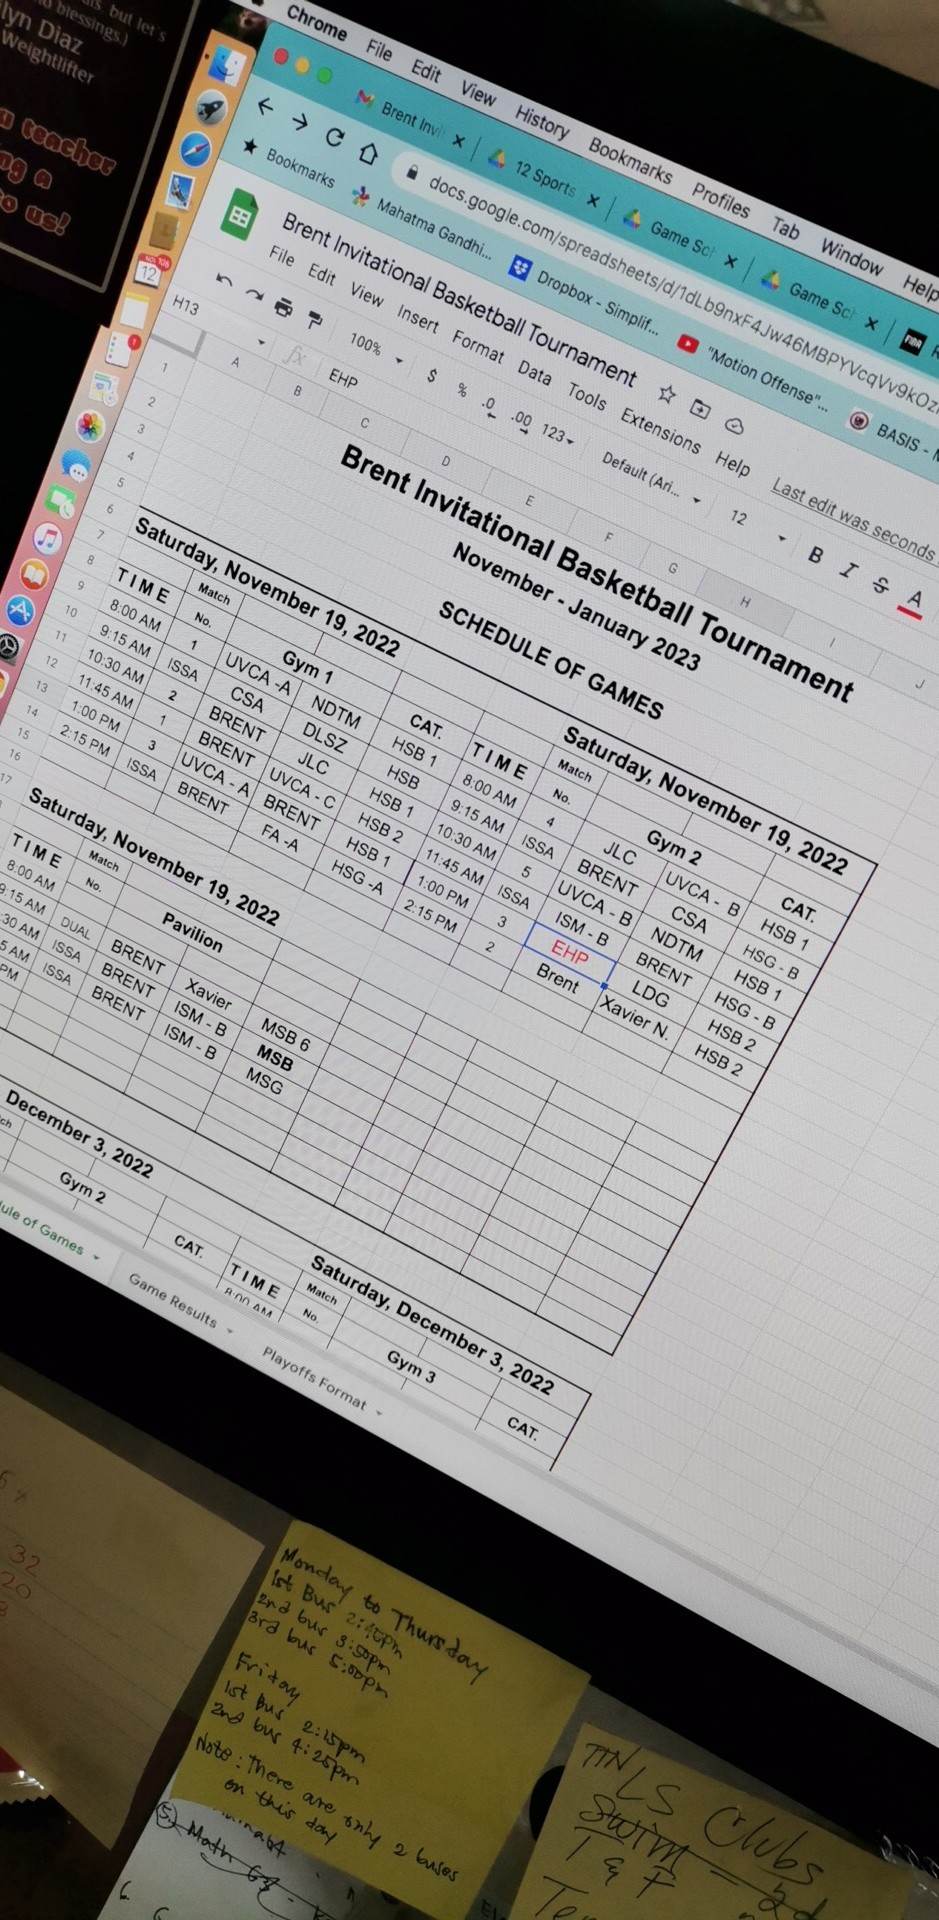 lyn Diaz
Weightlifter
Chrome File Edit View History Bookmarks Profiles Tab Window Help
Brent Invi × 12 Sports × Game Sc × Game Sc ×
docs.google.com/spreadsheets/d/1dLb9nxF4Jw46MBPYVcqVv9kOz
Bookmarks Mahatma Gandhi... Dropbox - Simplif... "Motion Offense"... BASIS -
Brent Invitational Basketball Tournament
File Edit View Insert Format Data Tools Extensions Help Last edit was seconds
100% $ % .0 .00 123 Default (Ari... 12 B I S A
H13 fx EHP
A B C D E F G H I J
Brent Invitational Basketball Tournament
November - January 2023
SCHEDULE OF GAMES
Saturday, November 19, 2022
TIME Match No. Gym 1 CAT.
8:00 AM 1 UVCA -A NDTM HSB 1
9:15 AM ISSA CSA DLSZ HSB
10:30 AM 2 BRENT JLC HSB 1
11:45 AM 1 BRENT UVCA - C HSB 2
1:00 PM 3 UVCA - A BRENT HSB 1
2:15 PM ISSA BRENT FA -A HSG -A
Saturday, November 19, 2022
TIME Match No. Gym 2 CAT.
8:00 AM 4 JLC UVCA - B HSB 1
9:15 AM ISSA BRENT CSA HSG - B
10:30 AM 5 UVCA - B NDTM HSB 1
11:45 AM ISSA ISM - B BRENT HSG - B
1:00 PM 3 EHP LDG HSB 2
2:15 PM 2 Brent Xavier N. HSB 2
Saturday, November 19, 2022
TIME Match No. Pavilion
8:00 AM DUAL BRENT Xavier MSB 6
9:15 AM ISSA BRENT ISM - B MSB
:30 AM ISSA BRENT ISM - B MSG
5 AM
PM
December 3, 2022
Gym 2 CAT.
Saturday, December 3, 2022
TIME Match No. Gym 3 CAT.
8:00 AM
ule of Games Game Results Playoffs Format
32
20
Monday to Thursday
1st Bus
2nd bus 3:50pm
3rd bus 5:00pm
Friday
1st Bus 2:15pm
2nd bus 4:25pm
Note: There are only 2 buses
on this day
LS Clubs
Swim
T & F